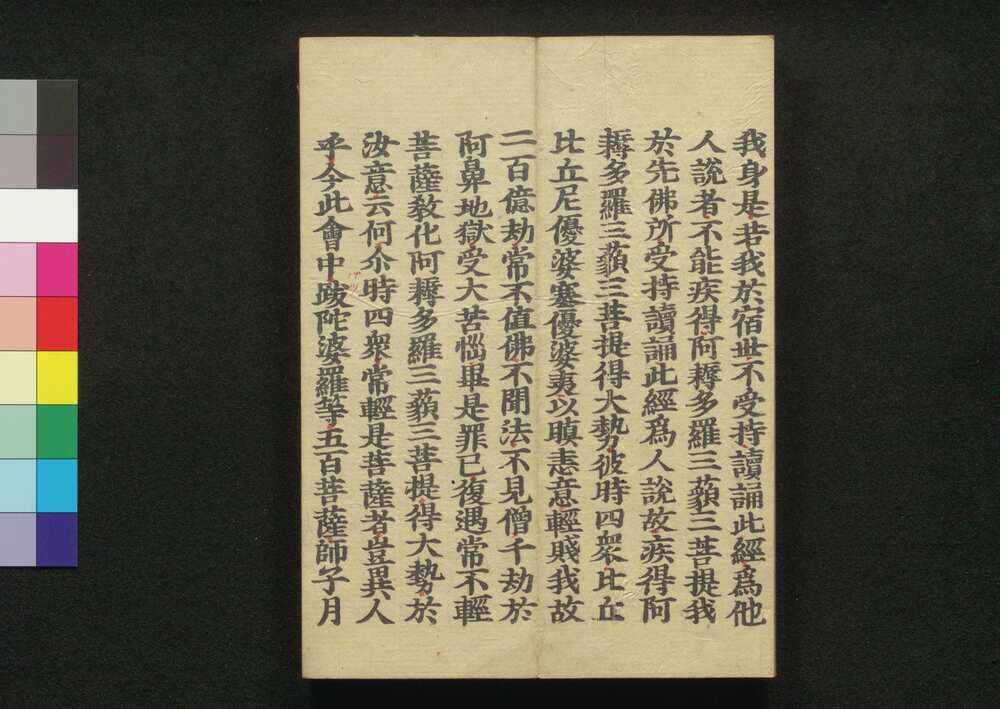 我身是若我於宿世不受持讀誦此經爲他
人說者不能疾得阿耨多羅三藐三菩提我
於先佛所受持讀誦此經爲人說故疾得阿
耨多羅三藐三菩提得大勢彼時四衆比丘
比丘尼優婆塞優婆夷以瞋恚意輕賤我故
二百億劫常不值佛不聞法不見僧千劫於
阿鼻地獄受大苦惱畢是罪已復遇常不輕
菩薩敎化阿耨多羅三藐三菩提得大勢於
汝意云何尒時四衆常輕是菩薩者豈異人
乎今此會中䟦陀婆羅等五百菩薩師子月